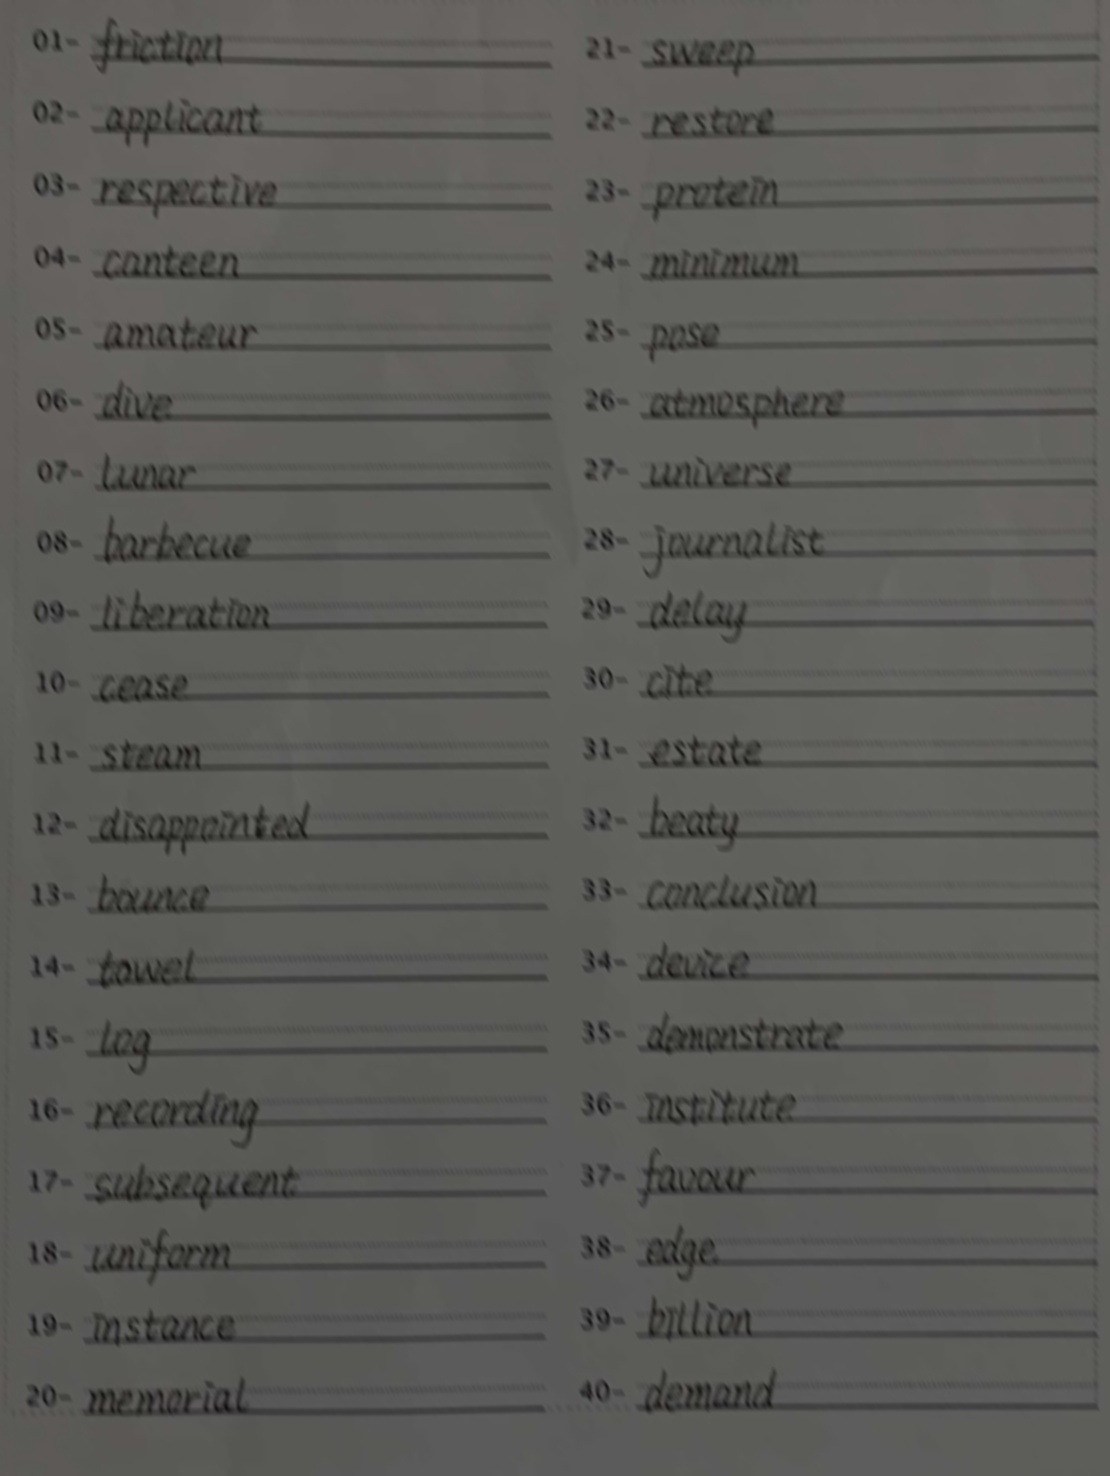 01- friction
02- applicant
03- respective
04- canteen
05- amateur
06- dive
07- lunar
08- barbecue
09- liberation
10- cease
11- steam
12- disappointed
13- bounce
14- towel
15- log
16- recording
17- subsequent
18- uniform
19- instance
20- memorial
21- sweep
22- restore
23- protein
24- minimum
25- pose
26- atmosphere
27- universe
28- journalist
29- delay
30- cite
31- estate
32- beaty
33- conclusion
34- device
35- demonstrate
36- institute
37- favour
38- edge
39- billion
40- demand